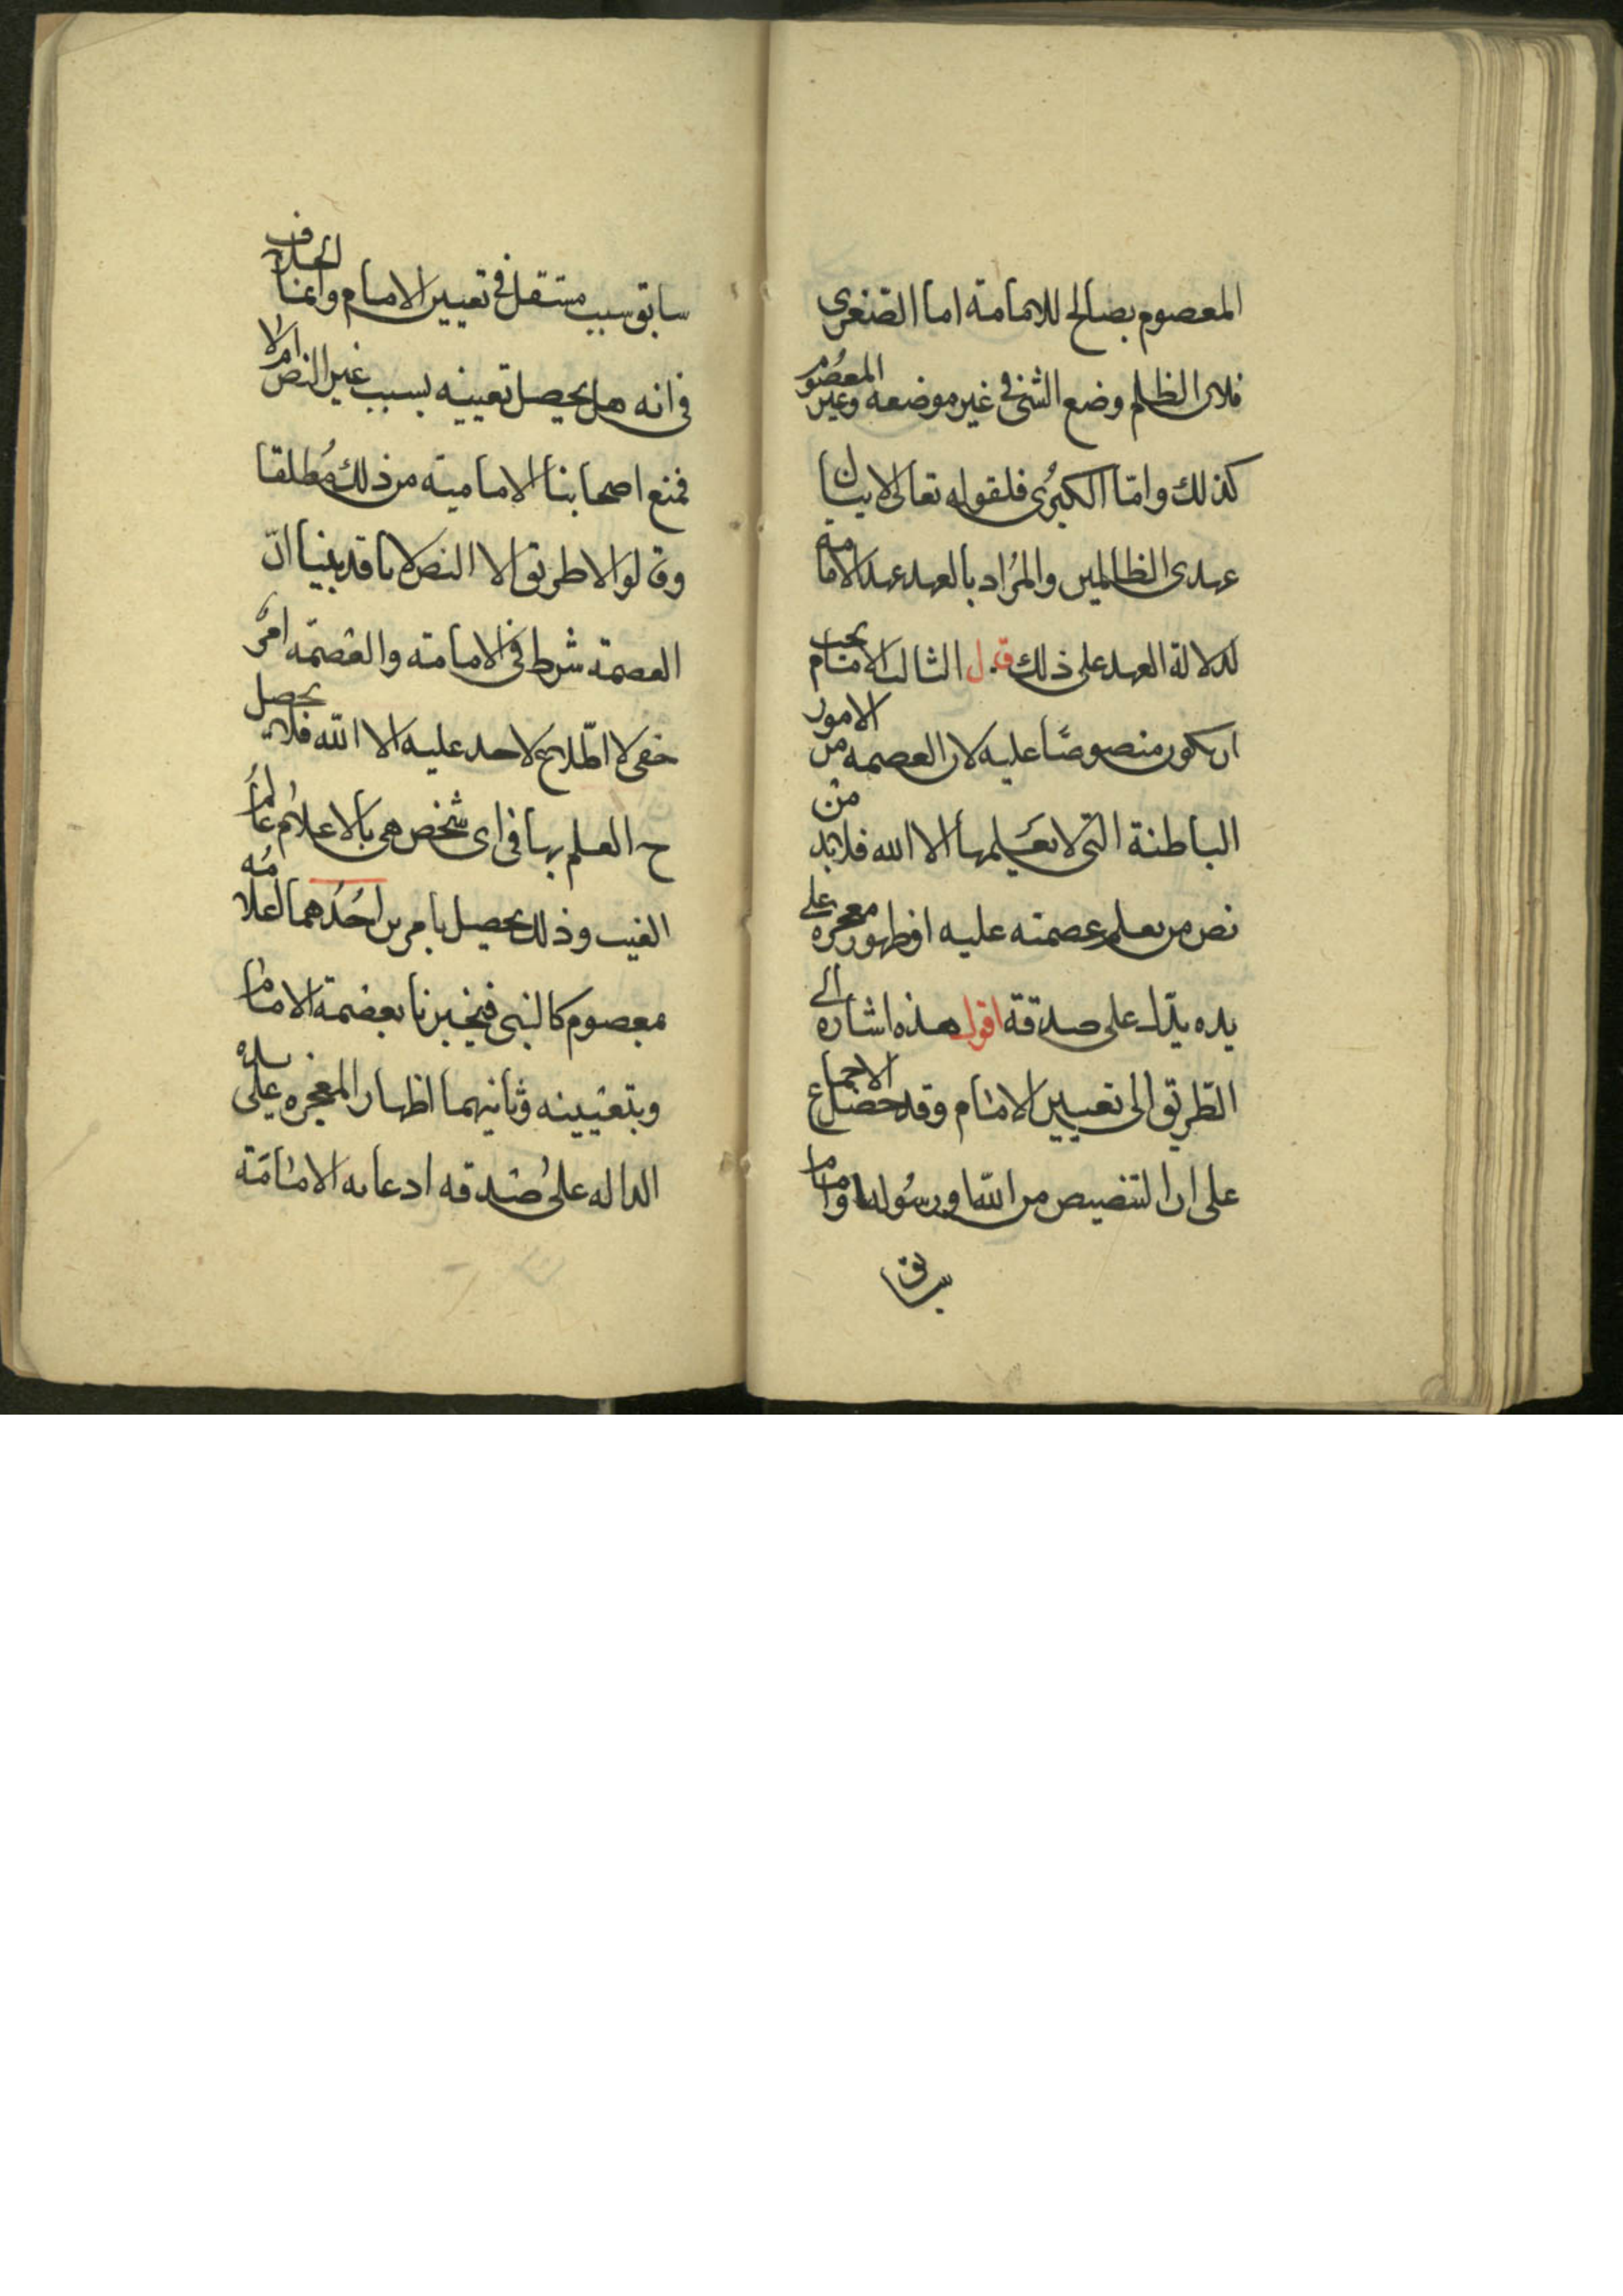 المعصوم بصالح للامامة اما الصغرى
فلان الظلم وضع الشئ في غير موضعه وغير المعصوم
كذلك وامّا الكبرُى فلقوله تعالى لا ينال
عهدى الظالمين والمرُاد بالعهد عهد الامامة
لدلالة العهد على ذلك قال الثالث الامام يجب
ان يكون منصوصًا عليه لان العصمه من الامور
الباطنة التى لا يعَلمها الا الله فلابد من
نص من يعلم عصمته عليه او ظهور معجزه على
يده يدّل على صدقة اقول هذه اشاره الى
الطّريق الى تعيين الامام وقد حصل الاجماع
على ان التنصيص من الله او رسُوله او امام
سابق
سابق سبب مستقل في تعيين الامام وانما الخلاف
في انه هل يحصل تعيينه بسبب غير النص ام لا
فمنع اصحابنا الامامية من ذلك مُطلقا
وقالوا لا طريق الا النص لانا قد بينا انّ
العصمة شرط في الامامة والعصمه امرٌ
خفى لا اطّلاع لاحد عليه الا الله فلا يحصل
ح العلم بها في اى شخص هى بالا علام عالمُ
الغيب وذلك يحصل بامرين احدُهما اعلامُه
بمعصوم كالنبى فيخبرنا بعصمة الامام
وبتعيينه وثانيهما اظهار المعجزه على يده
الداله على صدقه ادعايه الامامَة